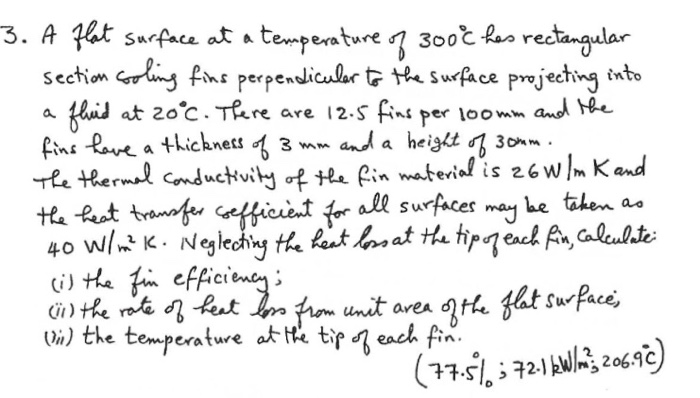 3. A flat surface at a temperature of 300°C has rectangular
section cooling fins perpendicular to the surface projecting into
a fluid at 20°C. There are 12.5 fins per 100mm and the
fins have a thickness of 3 mm and a height of 30mm.
The thermal conductivity of the fin material is 26 W/m K and
the heat transfer coefficient for all surfaces may be taken as
40 W/m² K. Neglecting the heat loss at the tip of each fin, calculate:
(i) the fin efficiency;
(ii) the rate of heat loss from unit area of the flat surface;
(iii) the temperature at the tip of each fin.
(77.5%; 72.1 kW/m²; 206.9°C)